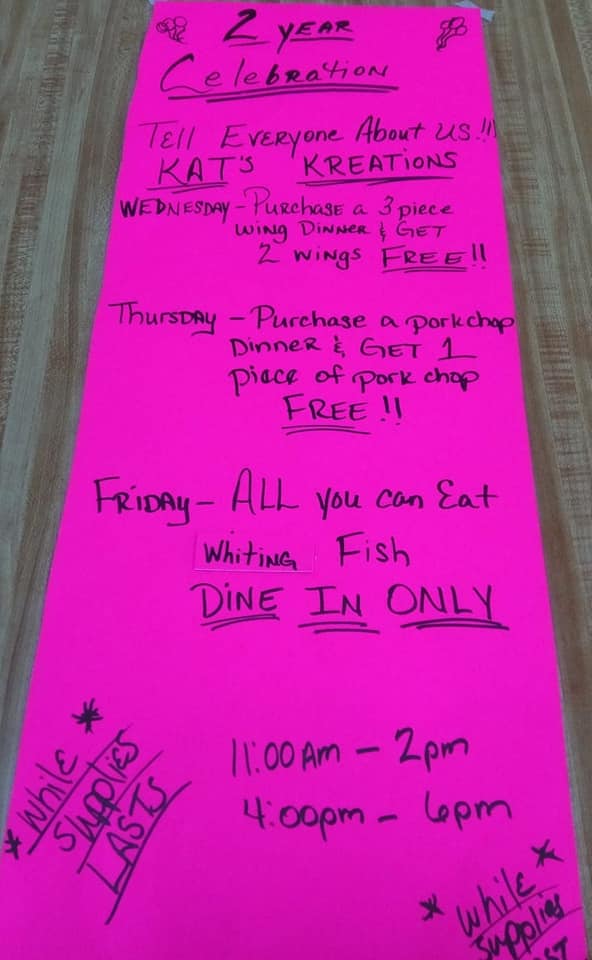 2 YEAR
CelebRATION
Tell Everyone About us!!!
KAT'S KREATIONS
WEDNESDAY - Purchase a 3 piece
wing Dinner & GET
2 wings FREE!!
Thursday - Purchase a porkchop
Dinner & GET 1
piece of pork chop
FREE!!
FRIDAY - ALL you can Eat
Whiting Fish
DINE IN ONLY
11:00 Am - 2pm
4:00pm - 6pm
* While *
supplies
LASTS
* while *
supplies